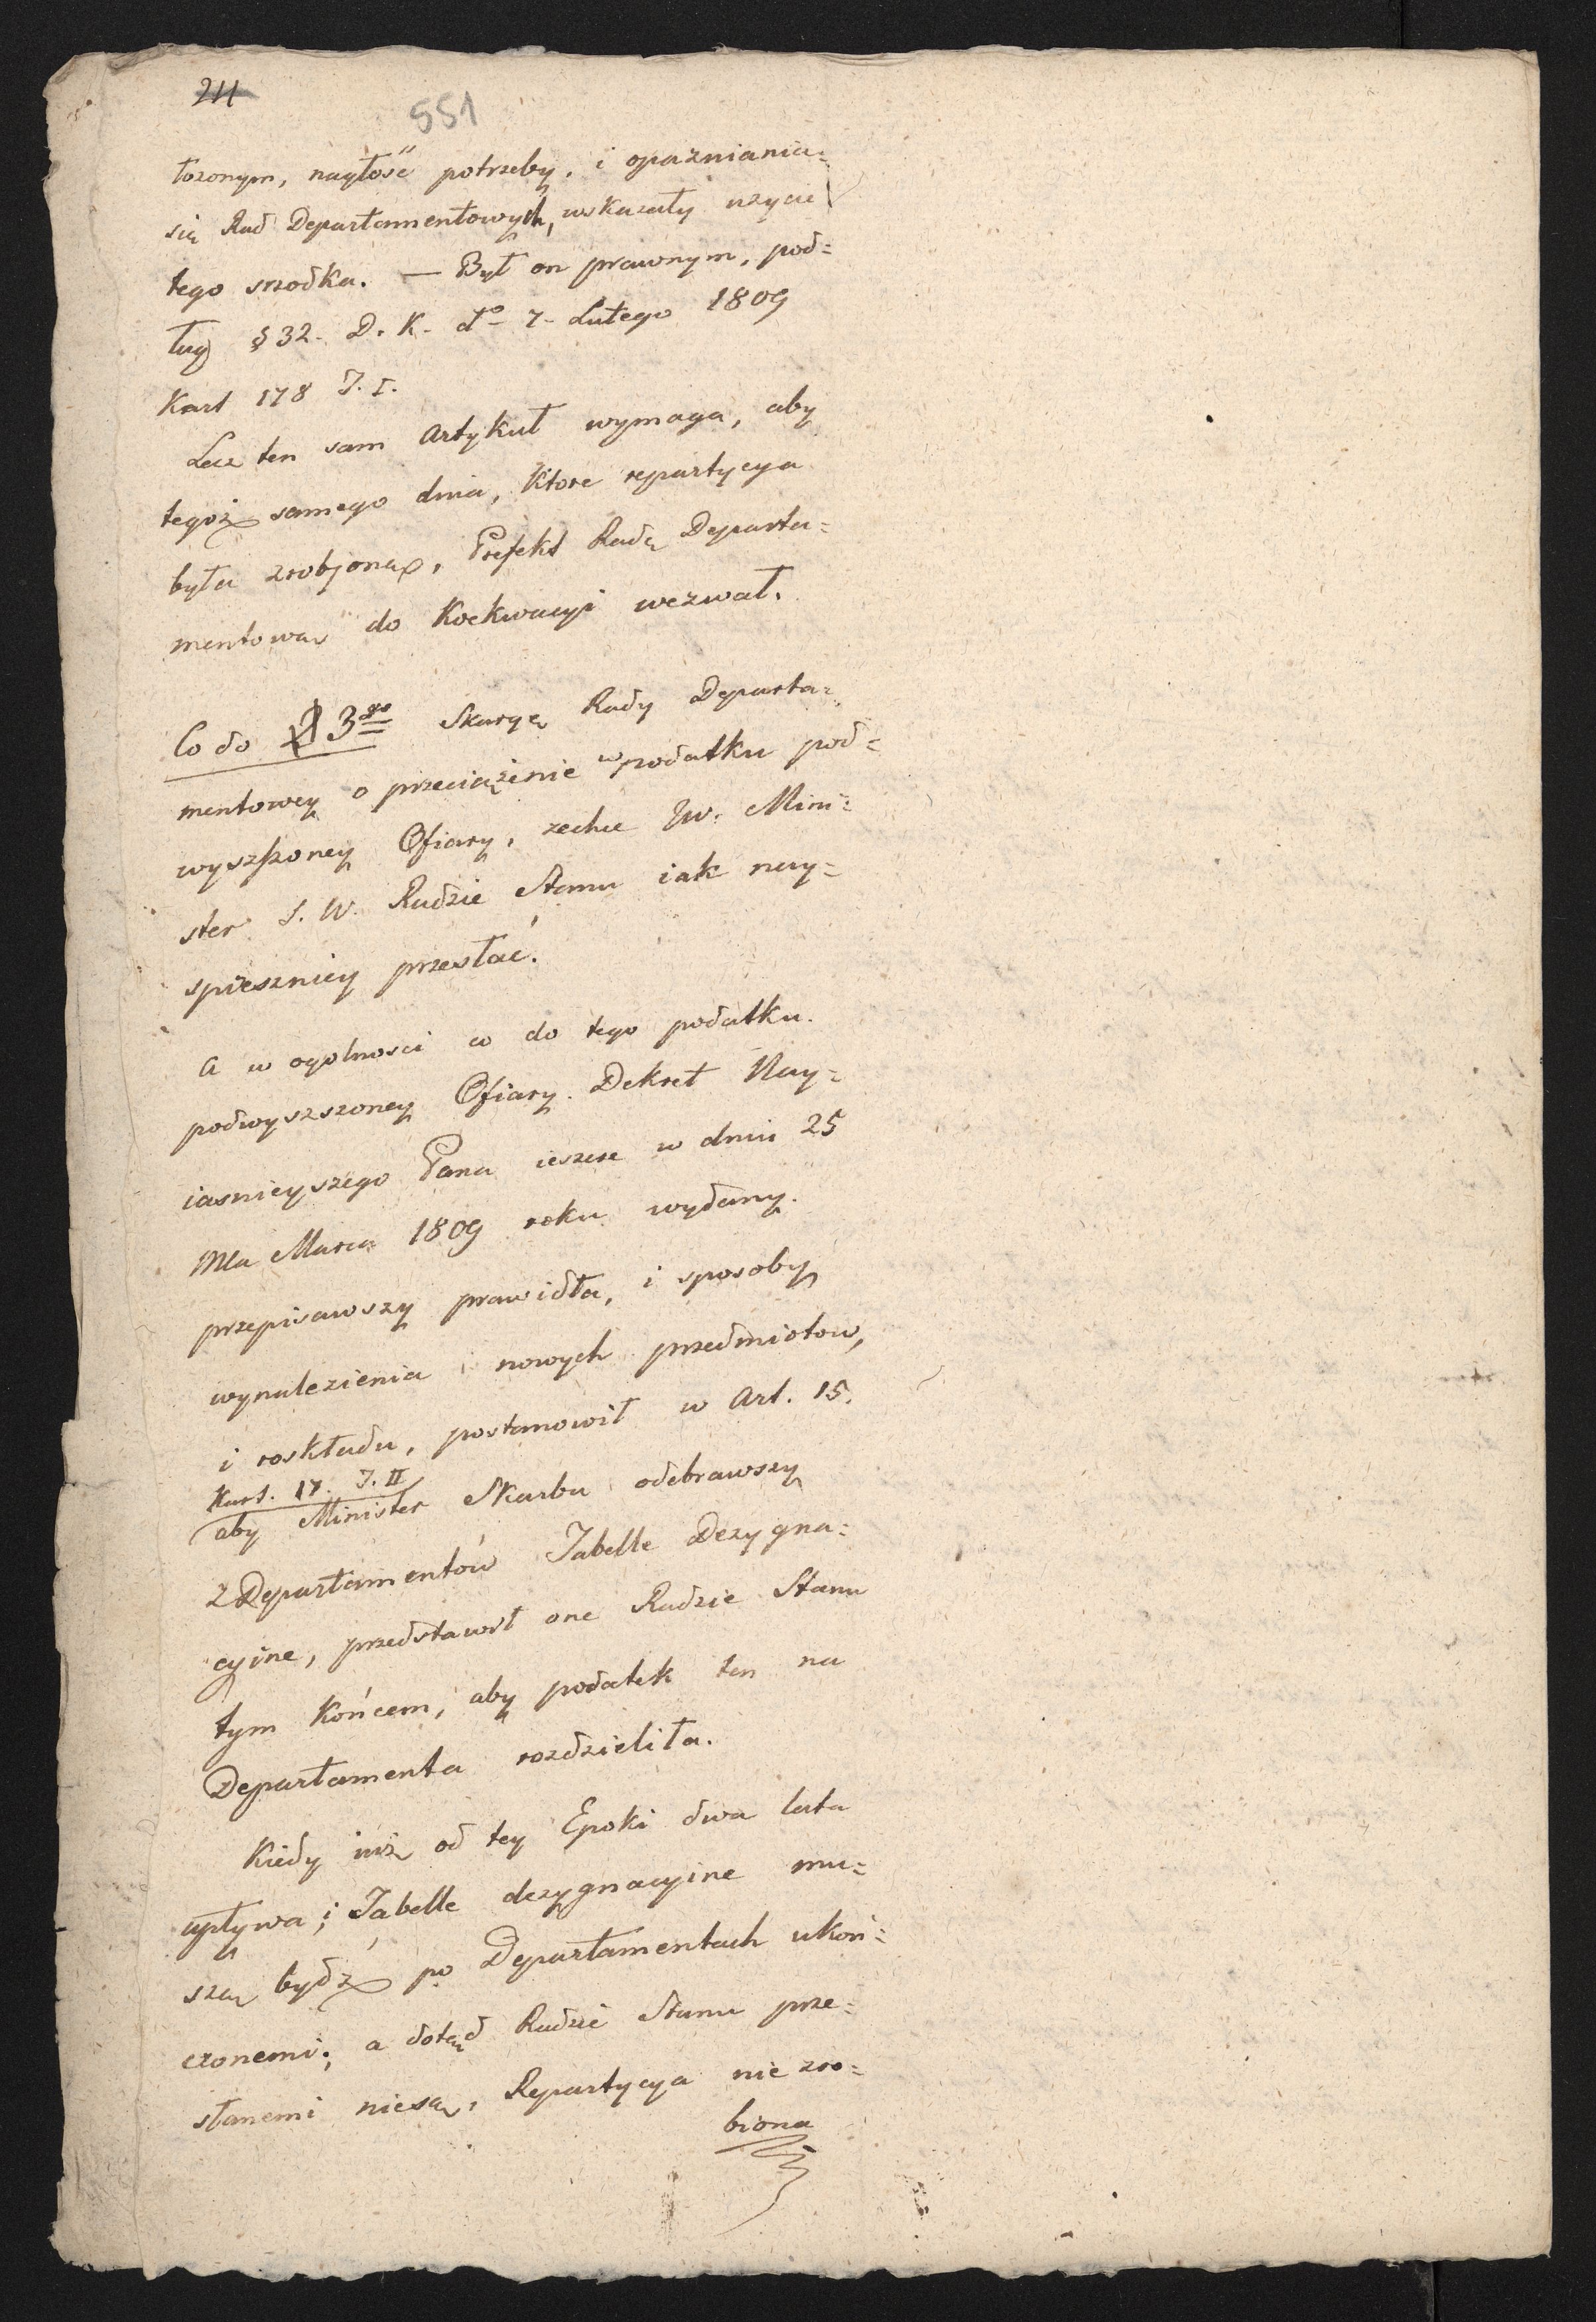 211
551
łozonym, nagłość potrzeby, i opaźniania
się Rad Departamentowych, wskazały użycie
tego srzodka. — Był on prawnym, pod=
ług § 32. D. K. do 7. Lutego 1809
Kart 178 T. I.
Lecz ten sam Artykuł wymaga, aby
tegoż samego dnia, Ktore repartycya
była zrobjoną, Prefekt Radę Departa=
mentową do Koekwacyi wezwał.
Co do § 3go Skargę Rady Departa=
mentowey o przeciążenie w podatku pod=
wyszszoney Ofiary, zechce JW. Mini=
ster S. W. Radzie Stanu iak nay=
spieszniey przesłać.
A w ogolnosci co do tego podatku
podwyszszoney Ofiary. Dekret Nay=
iasnieyszego Pana ieszcze w dniu 25
Mca Marca 1809 roku wydany.
przepisawszy prawidła, i sposoby
wynalezienia nowych przedmiotow,
i roskładu, postanowił w Art. 15.
Kart. 17. T. II
aby Minister Skarbu odebrawszy
z Departamentów Tabelle Dezygna=
cyine, przedstawił one Radzie Stanu
tym Końcem, aby podatek ten na
Departamenta rozdzieliła.
Kiedy iuż od tey Epoki dwa lata
upływa; Tabelle dezygnacyine mu=
szą bydź po Departamentach ukoń=
czonemi; a dotąd Radzie Stanu prze=
słanemi niesą, Repartycya nie zro=
biona